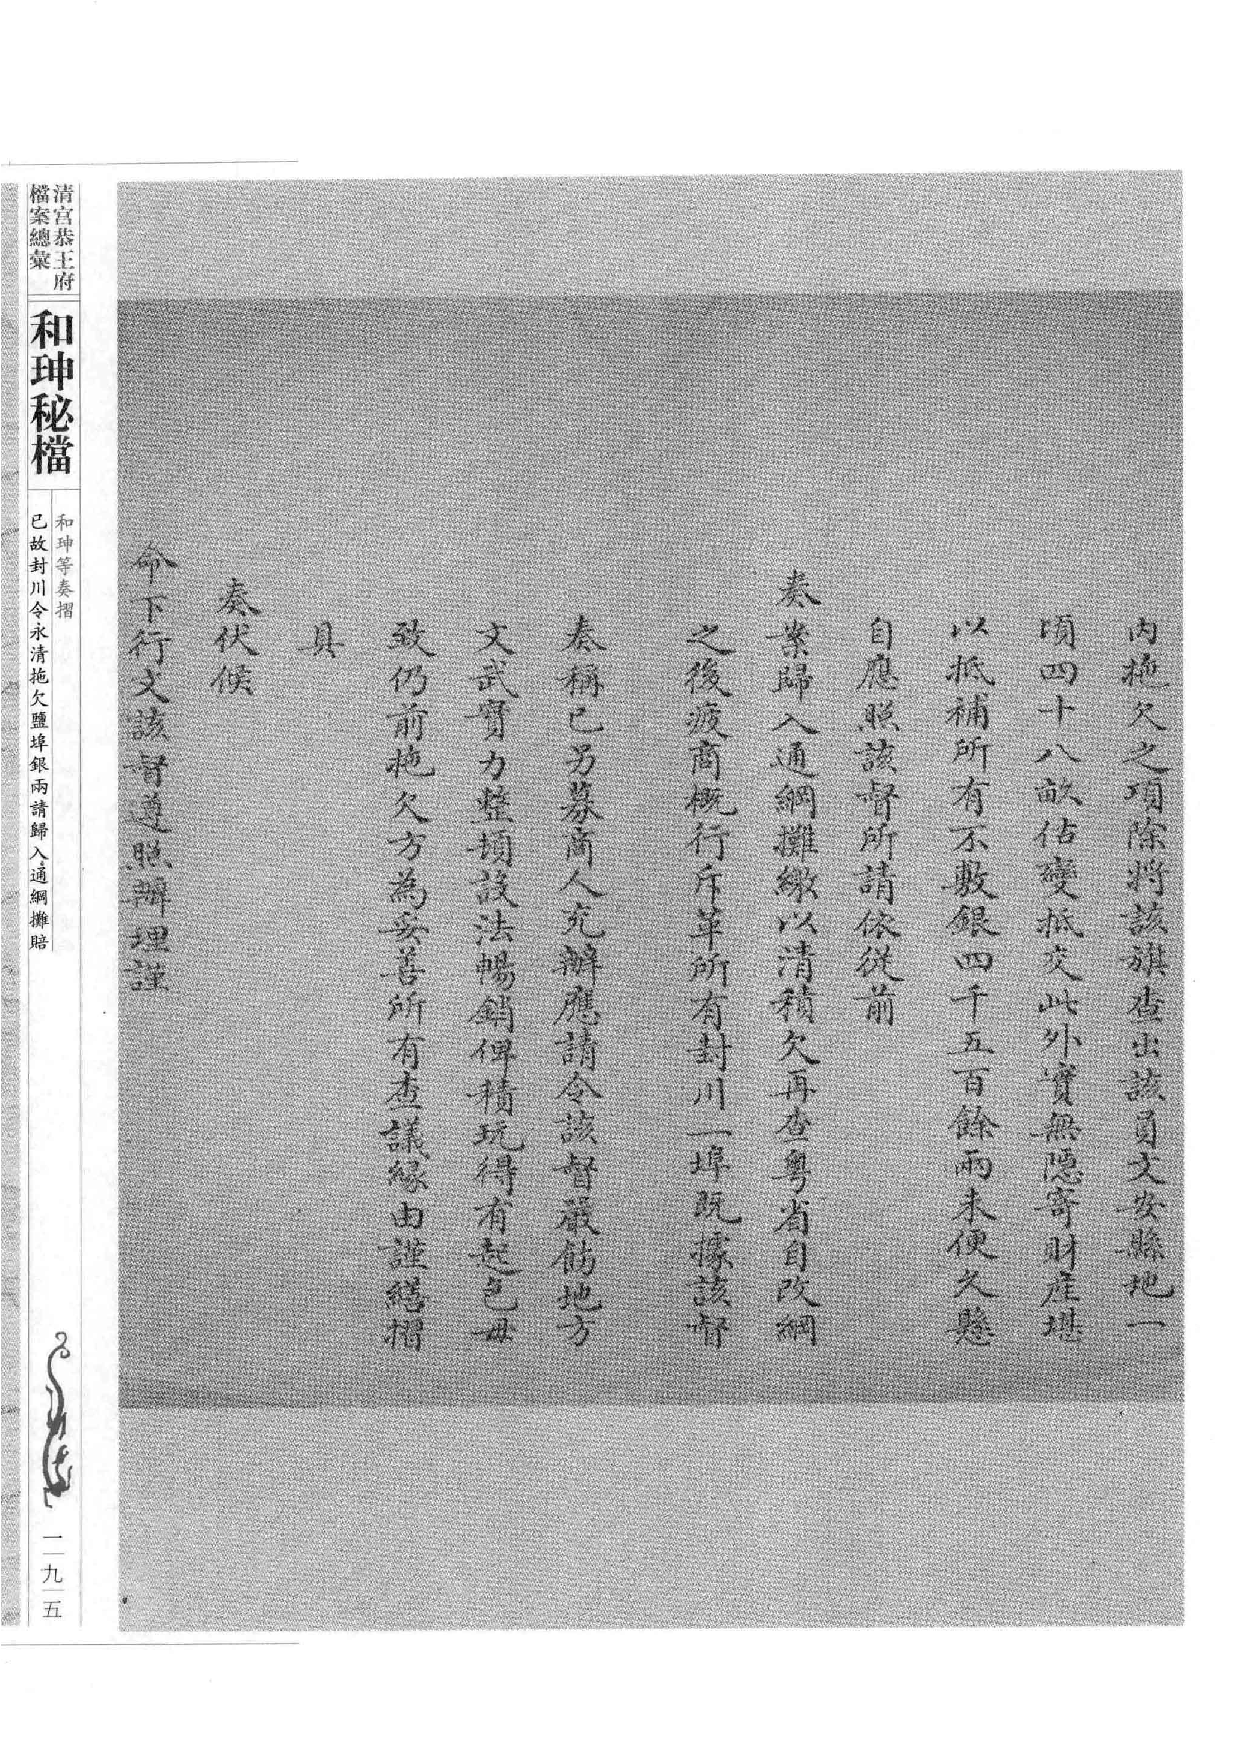 內拖欠之項除將該旗查出該員文安縣地一
頃四十八畝估變抵交此外實無隱寄財產堪
以抵補所有不敷銀四千五百餘兩未便久懸
自應照該督所請依從前
奏案歸入通綱攤繳以清積欠再查粵省自改綱
之後疲商概行斥革所有封川一埠既據該督
奏稱已另募商人充辦應請令該督嚴飭地方
文武實力整頓設法暢銷俾積玩得有起色毋
致仍前拖欠方為妥善所有查議緣由謹繕摺
具
奏伏候
命下行文該督遵照辦理謹
清宮恭王府
檔案總彙
和珅秘檔
和珅等奏摺
已故封川令永清拖欠鹽埠銀兩請歸入通綱攤賠
一九五